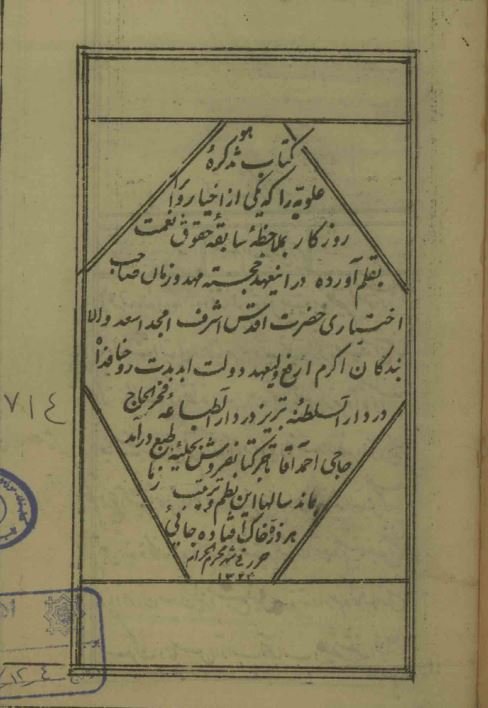 هو
کتاب تذکرهٔ
علویه را که یکی از اخیار و
روزکار بملاحظهٔ سابقهٔ حقوق نعمت
بقلم آورده در اینعهد خجسته مهد و زمان صاحب
اختیاری حضرت اقدس اشرف امجد اسعد والا
بندکان اکرم ارفع ولیعهد دولت ابدمدت روحنا فداه
در دار السلطنهٔ تبریز در دار الطباعه فخر الحاج
حاجی احمد آقا تاجر کتابفروش بحلیهٔ طبع درآمد
بماند سالها این نظم و ترتیب ز ما
هر ذره خاک افتاده جائی
حرر فی شهر محرم الحرام
۷۱۴